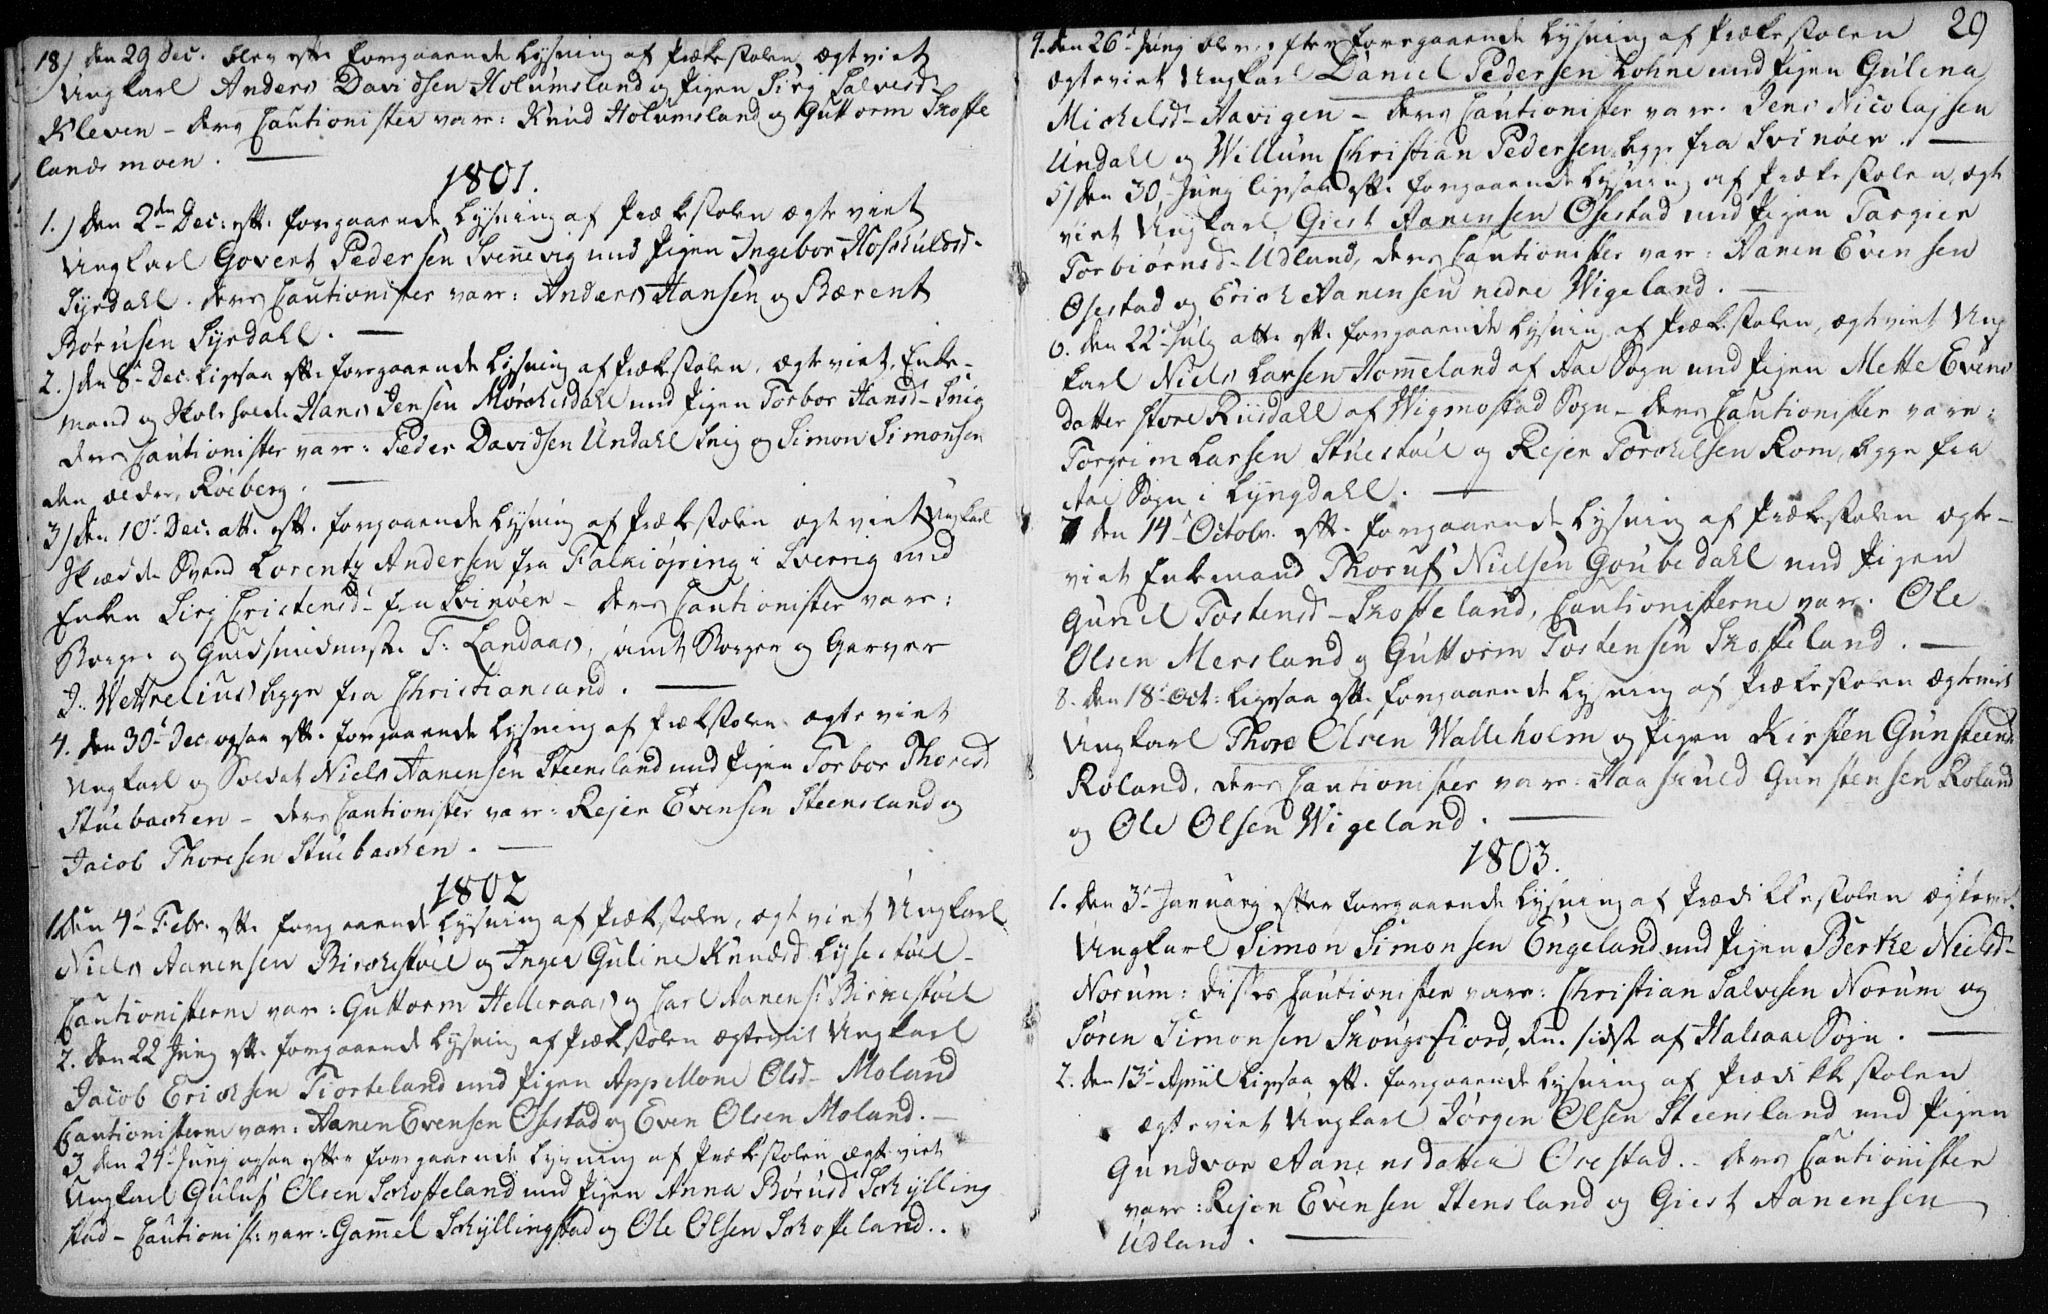 18) den 29 Dec. blev eftr. forgaaende Lysning af Prækestolen ægteviet
Ungkarl Anders Davidsen Holumsland og Pigen Siri Salvesd-
Kleven - deres Cautionister vare: Knud Holumsland og Guttorm Skoffe
lands moen. —
1801.
1.) den 2den Dec: eftr. forgaaende Lysning af Prækestolen ægteviet
Ungkarl Govert Pedersen Svennevig med Pigen Ingebor Hoskuldsd-
Syrdahl. deres Cautionister vare: Anders Hansen og Bærent
Børusen Syrdahl. —
2.) den 8de Dec. ligesaa eftr. forgaaende Lysning af Prækestolen, ægteviet, Enke-
mand og Skoleholder Hans Jensen Mørchesdahl med Pigen Torbor Hansd- Snig
deres Cautionister vare: Peder Davidsen Undahl Snig og Simon Simonsen
den ælder, Röeberg. —
3) den 10de Dec. att. eftr. forgaaende Lysning af Prækestolen ægteviet Ungkarl
Skrædder Svend Lorentz Andersen fra Falkiøping i Sverrig med
Enken Siri Cristensd- fra Svinøer - deres Cautionister vare:
Borger og Guldsmidmest. T: Landaas, samt Borger og Garver
J. Wettrelius begge fra Christiansand. —
4. den 30de Dec. ogsaa eftr. forgaaende Lysning af Prækestolen ægteviet
Ungkarl og Soldat Niels Aanensen Steensland med Pigen Torbor Thoresd
Stuebachen - deres Cautionister vare: Rejer Evensen Steensland og
Jacob Thoresen Stuebachen. —
1802
1 den 4de Febr. eftr. forgaaende Lysning af Prækestolen, ægteviet Ungkarl
Niels Aanensen Birchestöel og Inger Guline Knudsd Lyse stöel -
Cautionisterne var: Guttorm Helleraas og Carl Aanens: Birkestöel
2. den 22 Juny eftr. forgaaende Lysning af Prækestolen ægteviet Ungkarl
Jacob Erichsen Tiorteland med Pigen Appellone Olsd- Moland
Cautionisterne var: Aanen Evensen Osestad og Even Olsen Moland. —
3 den 24de Juny ogsaa efter forgaaende Lysning af Prækestolen ægteviet
Ungkarl Guluf Olsen Schoffeland med Pigen Anna Børusd Schylling
stad - Cautionist: var: Gammel Schyllingstad og Ole Olsen Schoffeland. .
29
4. den 26de Juny blev efter forregaaende Lysning af Prækestolen
ægteviet Ungkarl Daniel Pedersen Lohne med Pigen Gulena
Michelsd- Aavigen - deres Cautionister var. Jens Nicolajsen
Undahl og Willum Christian Pedersen begge fra Svinöer. —
5) den 30 Juny ligesaa eftr. forgaaende Lysning af Prækestolen, ægte
viet Ungkarl, Giert Aanensen Osestad med Pigen Targier
Torbiørnsd- Udland, deres Cautionister var: Aanen Evensen
Osestad og Erich Aanensen nedre Wigeland. —
6. den 22de July atter eftr. forgaaende Lysning af Prækestolen, ægteviet Ung
karl Niels Larsen Hommeland af Aae Sogn med Pigen Mette Evens
datter store Riisdahl af Wigmostad Sogn - deres Cautionister vare:
Torgrim Larsen Stuestöel og Rejer Torchelsen Rom, begge fra
Aae Sogn i Lyngdahl. —
7 den 14de Octobr. eftr. forgaaende Lysning af Prækestolen ægte-
viet Enkemand Thoruf Nielsen Goubedahl med Pigen
Gunel Tostensd- Skoffeland, Cautionisterne var. Ole
Olsen Mersland og Guttorm Tostensen Skoffeland. —
8. den 18de Oct: ligesaa eftr. forgaaende Lysning af Prækestolen ægteviet
Ungkarl Thore Olsen Walleholm og Pigen Kirsten Gunsteensd
Roland, deres Cautionister var. Haaskuld Gunstensen Roland
og Ole Olsen Wigeland. —
1803.
1. den 3de January efter forgaaende Lysning af Prædikkestolen ægtevi.
Ungkarl Simon Simonsen Engeland med Pigen Berthe Nielsd-
Norum: disses Cautionister vare: Christian Salvesen Norum og
Søren Simonsen Skougsfiord, den sidste af Halsaae Sogn. —
2. den 13de April ligesaa eftr. forgaaende Lysning af Prædikkestolen
ægteviet Ungkarl Jørgen Olsen Steensland med Pigen
Gundvor Aanensdatter Osestad. - deres Cautionister
vare: Rejer Evensen Stensland og Giert Aanensen
Udland. —